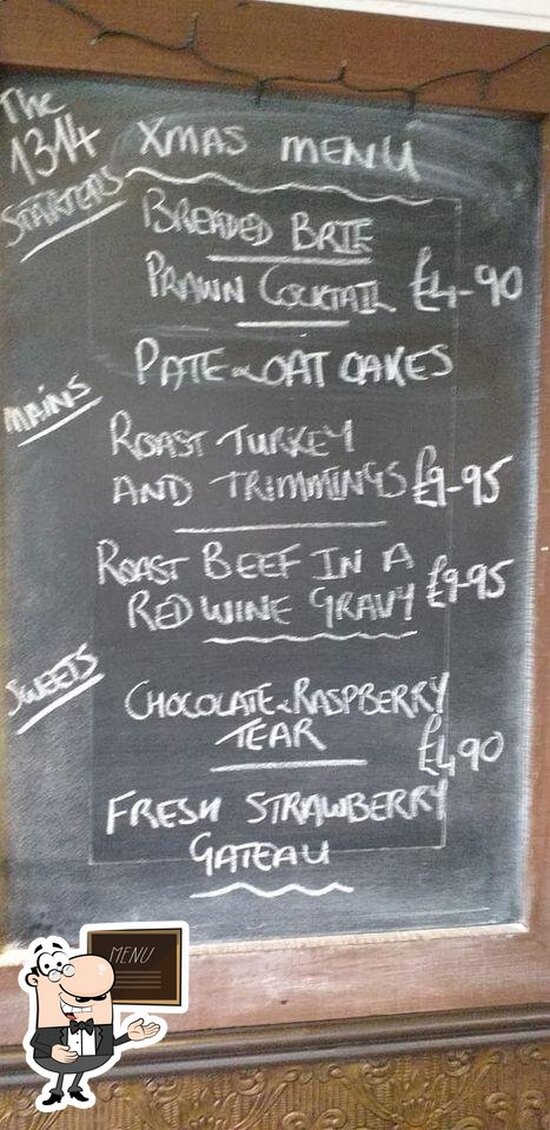 The
1314
XMAS MENU
STARTERS
BREADED BRIE
PRAWN COCKTAIL £4-90
PATE & OAT CAKES
MAINS
ROAST TURKEY
AND TRIMMINGS £9-95
ROAST BEEF IN A
RED WINE GRAVY £9-95
SWEETS
CHOCOLATE & RASPBERRY
TEAR £4,90
FRESH STRAWBERRY
GATEAU
MENU